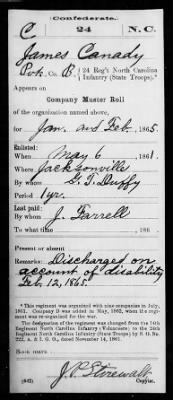 Confederate.
C 24 N.C.
James Canady
Pvt., Co. B, 24 Reg't North Carolina Infantry (State Troops).*
Appears on
Company Muster Roll
of the organization named above,
for Jan. and Feb., 1865.
Enlisted:
When May 6, 1861.
Where Jacksonville
By whom G. T. Duffy
Period 1 yr.
Last paid:
By whom J. Farrell
To what time , 186
Present or absent
Remarks: Discharged on
account of disability
Feb. 12, 1865.
*This regiment was organized with nine companies in July,
1861. Company D was added in May, 1862, when the regiment was re-organized for the war.
The designation of the regiment was changed from the 14th
Regiment North Carolina Infantry (Volunteers) to the 24th
Regiment North Carolina Infantry (State Troops) by S. O. No.
222, A. & I. G. O., dated November 14, 1861.
Book mark:
(642) J. P. Stirewalt
Copyist.